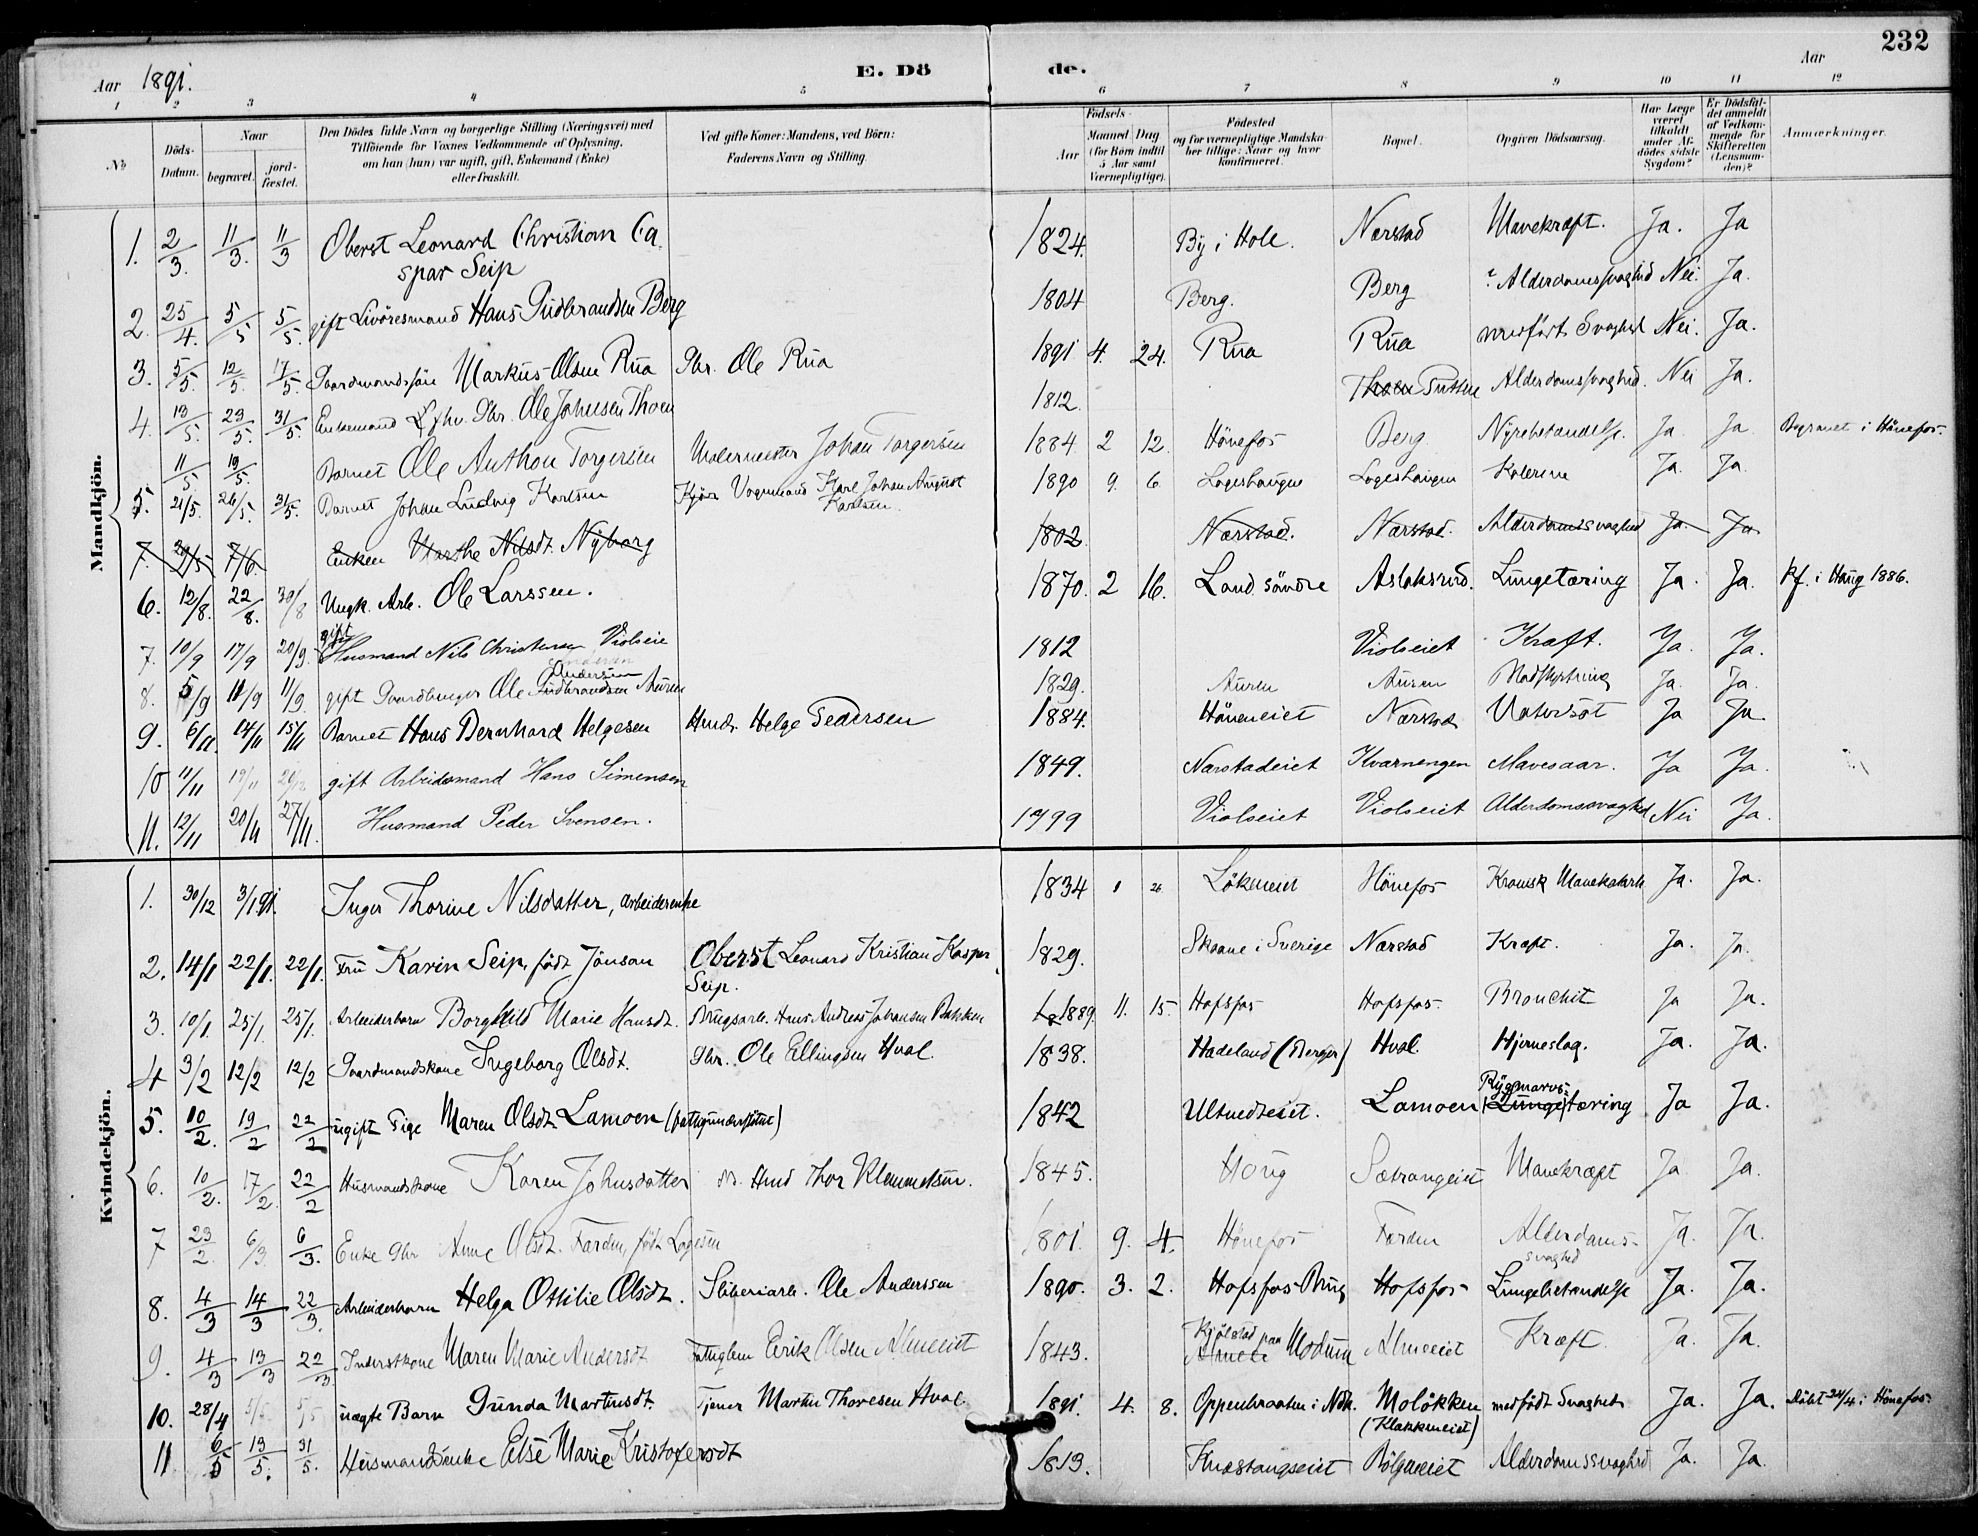 232
Aar 1891. E. Dö de. Aar
1 2 3 4 5 6 7 8 9 10 11 12
No
Döds-Datum.
Naar
begravet.
jord-fæstet.
Den Dödes fulde Navn og borgerlige Stilling (Næringsvei) med
Tilföiende for Voxnes Vedkommende af Oplysning,
om han (hun) var ugift, gift, Enkemand (Enke)
eller fraskilt.
Ved gifte Koner: Mandens, ved Börn:
Faderens Navn og Stilling.
Födsels-
Aar
Maaned Dag
(for Börn indtil
5 Aar samt
Værnepligtige).
Födested
og for værnepligtige Mandska-
ber tillige: Naar og hvor
konfirmeret.
Bopæl.
Opgiven Dödsaarsag.
Har Læge
været
tilkaldt
under Af-
dödes sidste
Sygdom?
Er Dödsfal-
det anmeldt
af Vedkom-
mende for
Skifteretten
(Lensman-
den)?
Anmærkninger.
Mandkjön.
1. 2/3. 11/3. 11/3 Oberst Leonard Christian Ca 1824. By i Hole. Nærstad Mavekræft. Ja. Ja
spar Seip
2. 25/4. 5/5 5/5. gift Livöresmand Hans Gudbrandsen Berg 1804 Berg. Berg Alderdomssvaghed Nei. Ja.
3. 5/5. 12/5. 17/5. Gaardmandssön Markus Olsen Rua Gbr. Ole Rua 1891 4. 24. Rua Rua medfödt Svaghed Nei. Ja.
4. 13/5. 23/5. 31/5. Enkemand Gbr. Ole Johnsen Thoen 1812. Thoen Alderdomssvaghed. Nei Ja.
11/5 19/5. Barnet Ole Anthon Torgersen Malermester Johan Torgersen 1884 2 12. Hönefos Berg Nyrebetændelse. Ja Ja Begravet i Hönefos.
5. 21/5. 26/5. 31/5. Barnet Johan Ludvig Karlsen Kjöre Vognmand Karl Johan August
Karlsen. 1890 9. 6 Logeshaugen Logeshaugen Kolerine Ja. Ja.
7. 29/5 7/6. Enken Marthe Nilsdt. Nyborg 1802. Nærstad. Nærstad. Alderdomssvaghed Ja Ja
6. 12/8. 22/8. 30/8 Ungk. Arb. Ole Larssen. 1870. 2 16. Land söndre Aslaksrud. Lungetæring Ja. Ja. Kf. i Haug 1886.
7. 10/9 17/9 20/9. gift Husmand Nils Christensen Violseie 1812 Violseiet Kræft. Ja. Ja.
Andersen
8. 5/9 11/9 11/9. gift Gaardbruger Ole Gudbrandsen Auren 1829. Auren Auren Blodstyrtning Ja. Ja.
9. 6/11. 14/11 15/11 Barnet Hans Bernhard Helgesen Hmd. Helge Pedersen 1884. Höneneiet Nærstad Vatersot Ja Ja.
10 11/11 19/11 gift Arbeidsmand Hans Simensen 1849. Nærstadeiet Kværnengen Mavesaar. Ja Ja.
11. 12/11 20/11 27/11. Husmand Peder Svensen. 1799 Violseiet Violseiet Alderdomssvaghed Nei Ja.
Kvindekjön.
1. 30/12 3/1 91. Inger Thorine Nilsdatter, arbeiderenke 1834 1 26 Lökeneiet Hönefos Kronisk Mavekatarh Ja. Ja.
2. 14/1 22/1. 22/1. Fru Karin Seip, födt Jönson Oberst Leonard Kristian Kasper
Seip. 1829. Skaane i Sverige Nærstad Kræft. Ja. Ja.
3. 10/1. 25/1. 25/1. Arbeiderbarn Borghild Marie Hansdt. Brugsarb. Hans Andreas Johansen Bakken 1889. 11. 15. Hofsfos Hofsfos Bronchit Ja Ja.
4 3/2 12/2 12/2 Gaardmandskone Ingeborg Olsdt. Gbr. Ole Ellingsen Hval. 1838. Hadeland (Berger) Hval. Hjerneslag. Ja. Ja.
Rygmarvs-
5. 10/2. 19/2 22/2 ugift Pige Maren Olsdt Lamoen (fattigunderstöttet) 1842 Ultvedteiet. Lamoen (Lunge)tæring Ja Ja.
6. 10/2. 17/2. 22/2 Husmandskone Karen Johnsdatter M. Hmd Thor Klemmetsen. 1845. Houg Sætrangeiet Mavekræft Ja Ja.
7 23/2. 6/3. 6/3. Enke Gbr Anne Olsdt. Farden, födt Logesen 1801. 9. 4. Hönefos Farden Alderdoms-
svaghed Ja. Ja.
8. 4/3 14/3 22/3. Arbeiderbarn Helga Othilie Olsdt. Sliberiarb. Ole Anderssen 1890. 3. 2. Hofsfos Brug Hofsfos Lungebetændelse Ja. Ja.
9. 4/3 13/3 22/3. Inderstkone Maren Marie Andersdt Fattiglem Eerik Olsen Almeeiet 1843. Kjölstad paa Modum Almeeiet Kræft. Ja. Ja.
10. 28/4 5/5 5/5 uægte Barn Gunda Martinsdt. Tjener Martin Thoresen Hval. 1891. 4. 8. Oppenbraaten i Ndh. Molökken
(Klækkeneiet) medfödt Svaghed Ja. Ja. Döbt 24/4 i Hönefos.
11 6/5 13/5. 31/5. Husmandsenke Else Marie Kristofersdt 1813. Knestangseiet Bölgeneiet Alderdomssvaghed Ja. Ja.